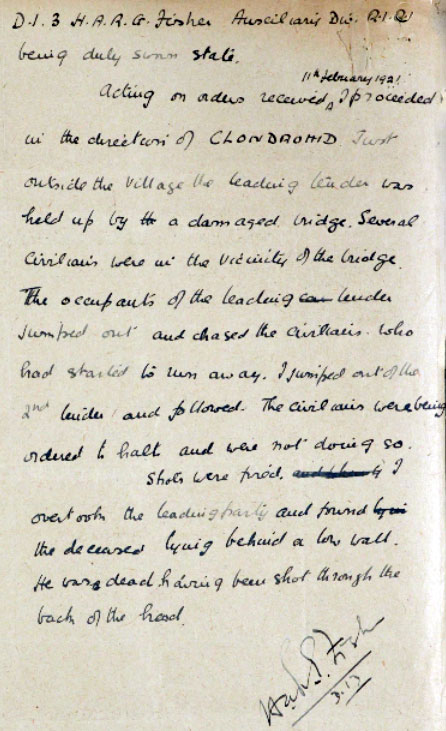 D.I.3 H.A.R.G. Fisher Auxiliary Div. R.I.C.
being duly sworn state.
11th February 1921
Acting on orders received, I proceeded
in the direction of CLONDROHID. Just
outside the village the leading tender was
held up by th a damaged bridge. Several
civilians were in the vicinity of the bridge.
The occupants of the leading car tender
jumped out and chased the civilians who
had started to run away. I jumped out of the
2nd tender and followed. The civilians were being
ordered to halt and were not doing so.
Shots were fired. I
overtook the leading party and found lyin
the deceased lying behind a low wall.
He was dead having been shot through the
back of the head.